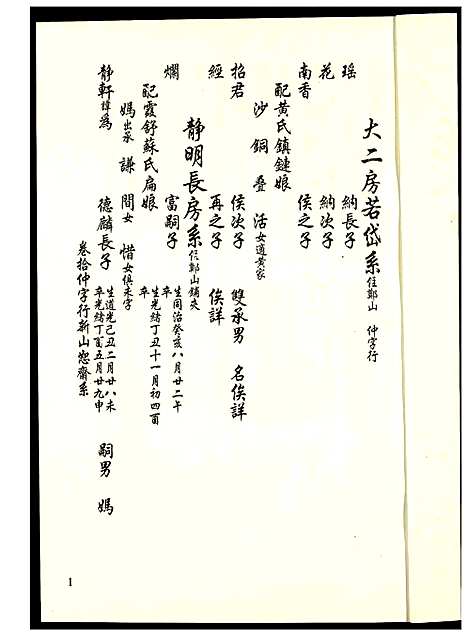 大二房若岱系 住鄭山 仲字行
瑶 納長子
花 納次子
南香 侯之子
配黃氏鎮鏈娘
沙 銅 叠 活 女適黄家
招君 侯次子 雙承男 名俟詳
經 再之子 俟詳
靜明長房系 住鄭山鋪尖
爛 富嗣子 生同治癸亥八月廿二午 卒
配霞舒蘇氏扁娘 生光緒丁丑十一月初四酉 卒
媽 出承 謙 間 女 惜 女俱未字
靜軒 諱爲 德麟長子 生道光己丑二月廿八未 卒光緒丁酉五月廿九申 嗣男 媽
卷拾仲字行新山恕齋系
1